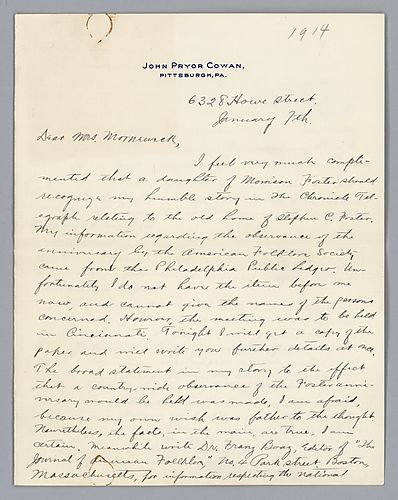 1914
JOHN PRYOR COWAN,
PITTSBURGH, PA.
6328 Howe Street.
January 7th.
Dear Mrs. Morneweck,
I feel very much compli-
mented that a daughter of Morrison Foster should
recognize my humble story in The Chronicle Tel-
egraph relating to the old home of Stephen C. Foster.
My information regarding the observance of the
anniversary by the American Folklore Society
came from the Philadelphia Public Ledger. Un-
fortunately I do not have the item before me
now and cannot give the names of the persons
concerned. However, the meeting was to be held
in Cincinnati. Tonight I will get a copy of the
paper and will write you further details at once.
The broad statement in my story to the effect
that a country-wide observance of the Foster anni-
versary would be held was made, I am afraid,
because my own wish was father to the thought
Nevertheless, the facts, in the main, are true, I am
certain. Meanwhile write Dr. Franz Boaz, Editor of "The
Journal of American Folklore," No. 4 Park Street, Boston,
Massachusetts, for information respecting the national